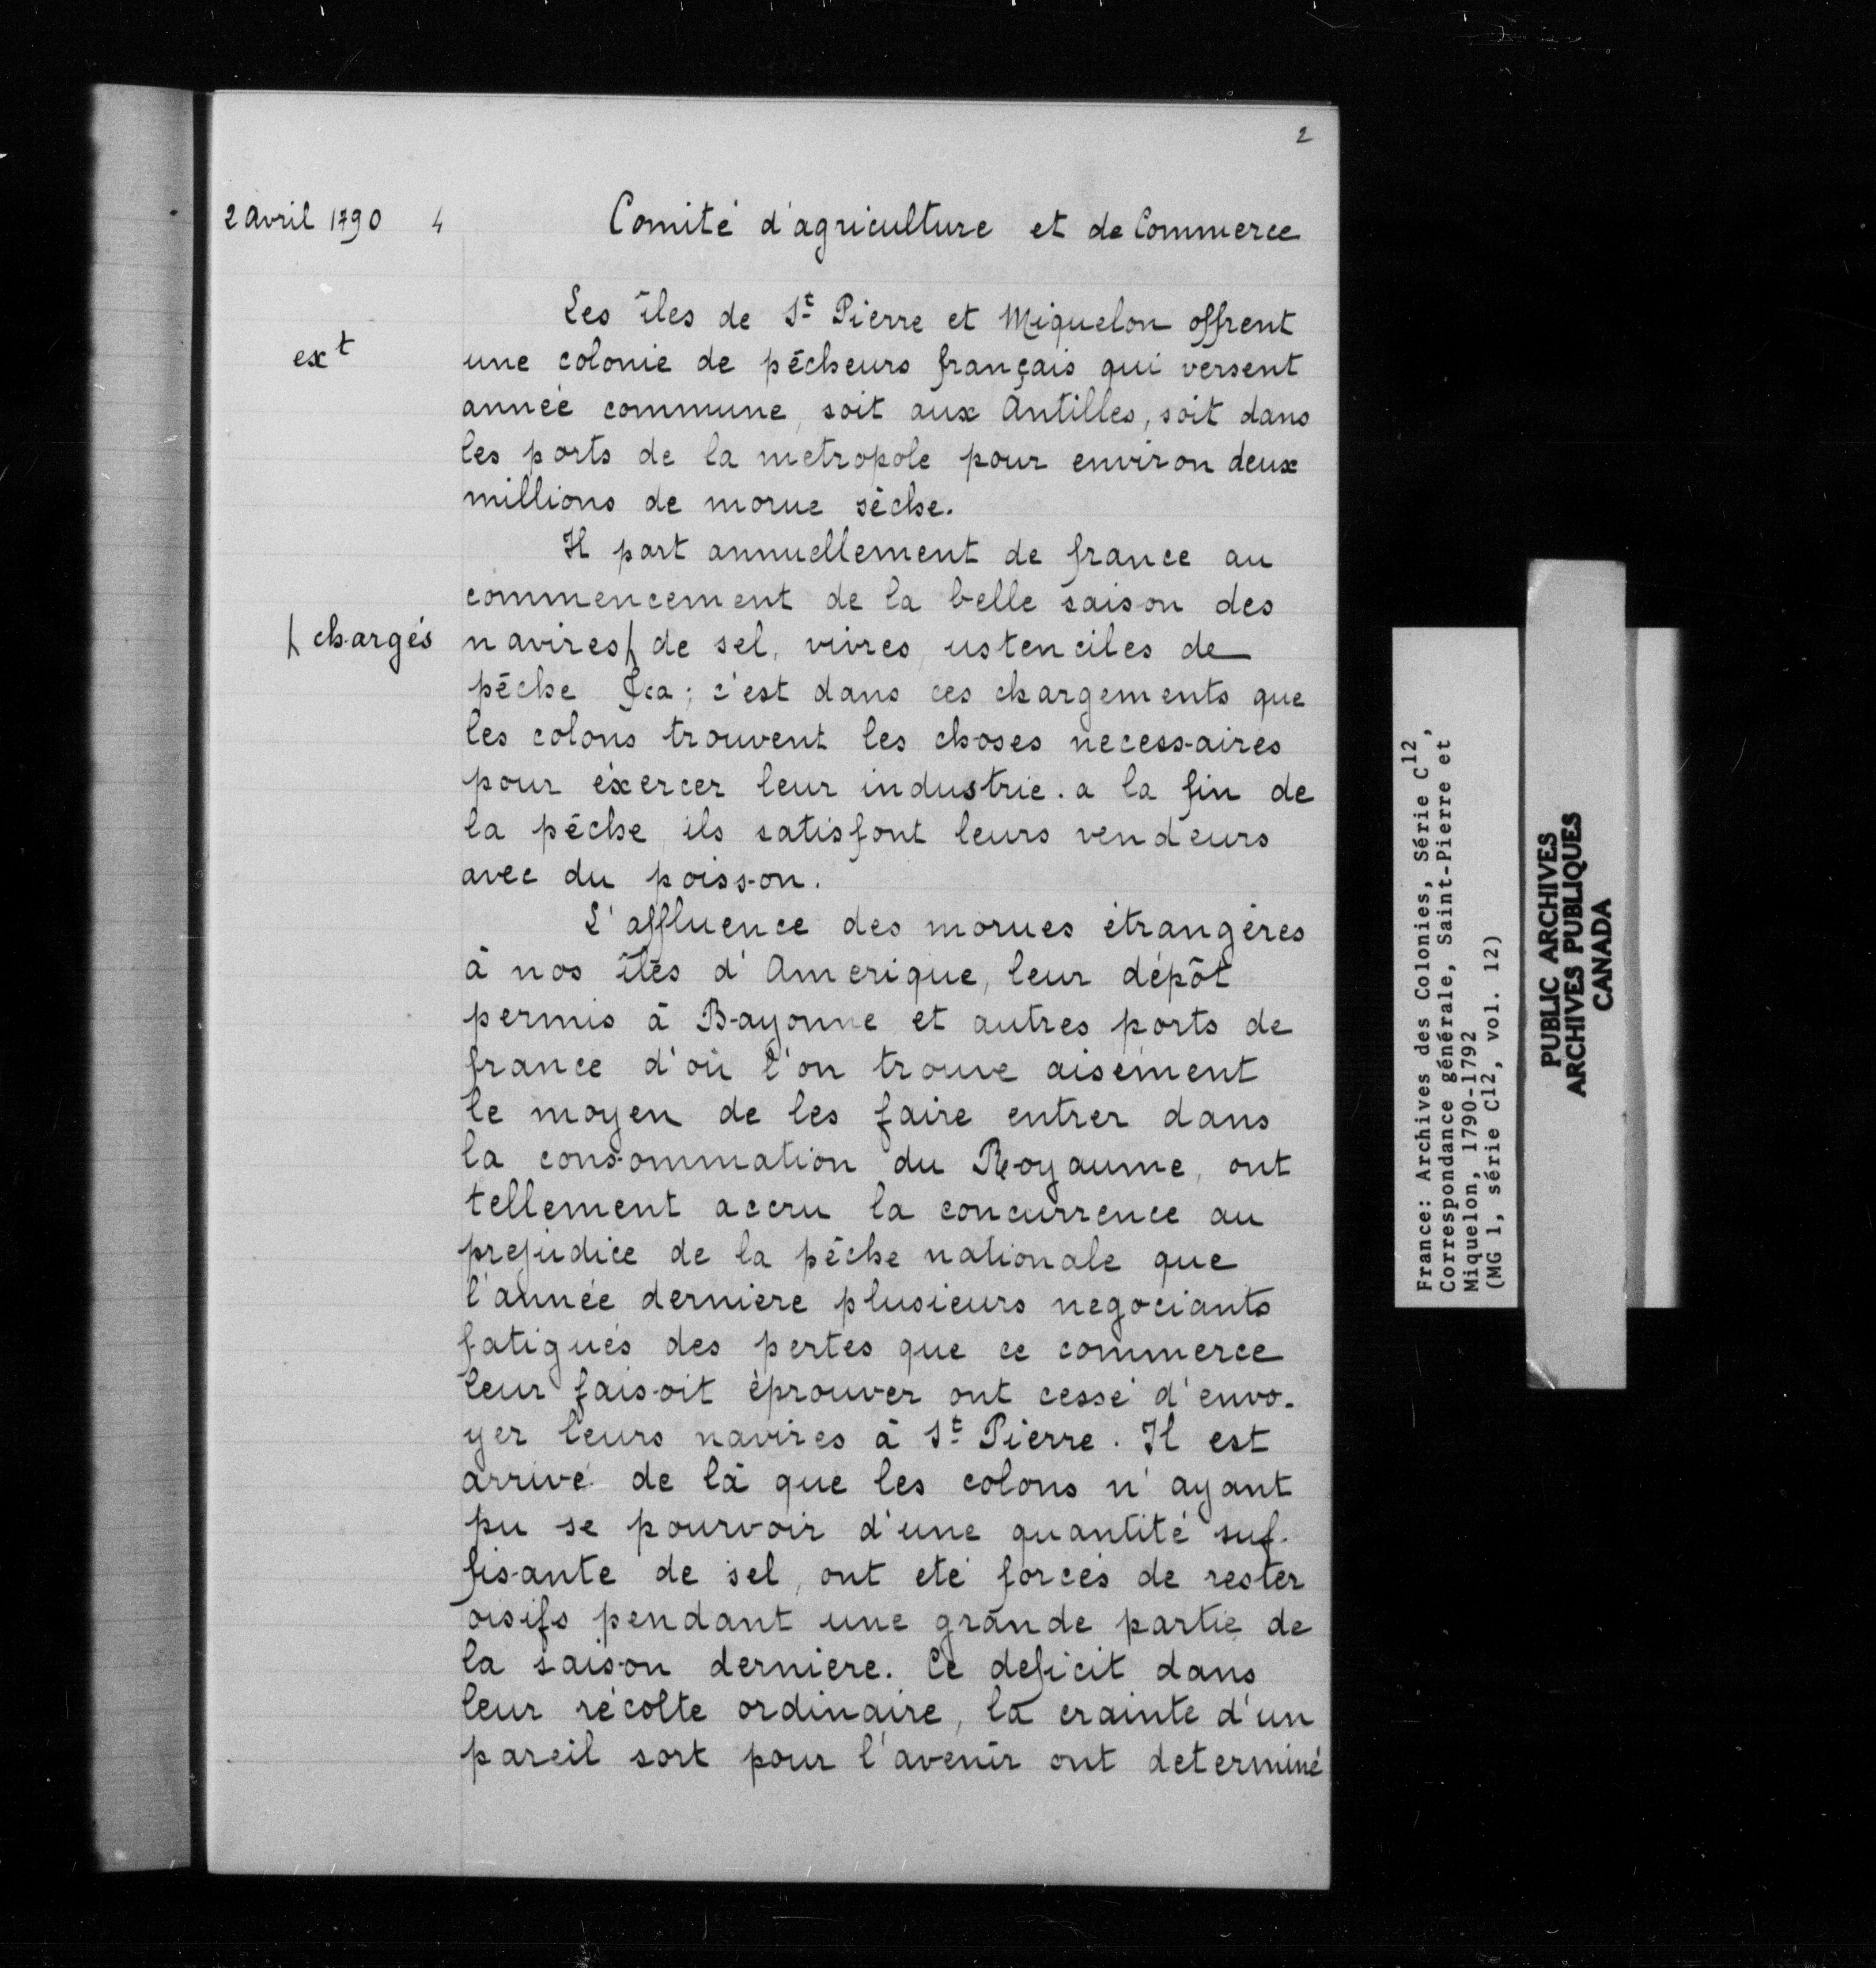 2
2 avril 1790 4 Comité d'agriculture et de Commerce
Les îles de St Pierre et Miquelon offrent
ext
une colonie de pêcheurs français qui versent
année commune, soit aux Antilles, soit dans
les ports de la metropole pour environ deux
millions de morue sêche.
Il part annuellement de france au
commencement de la belle saison des
chargés
navires de sel, vivres, ustenciles de
pêche &ca ; c'est dans ces chargements que
les colons trouvent les choses necessaires
pour éxercer leur industrie. a la fin de
la pêche ils satisfont leurs vendeurs
avec du poisson.
L'affluence des morues étrangères
à nos îles d'Amerique, leur dépôt
permis à Bayonne et autres ports de
france d'où l'on trouve aisément
le moyen de les faire entrer dans
la consommation du Royaume, ont
tellement accru la concurrence au
prejudice de la pêche nationale que
l'année derniere plusieurs negociants
fatigués des pertes que ce commerce
leur faisoit éprouver ont cessé d'envo-
yer leurs navires à St Pierre. Il est
arrivé de là que les colons n'ayant
pu se pourvoir d'une quantité suf-
fisante de sel, ont eté forcés de rester
oisifs pendant une grande partie de
la saison derniere. Ce deficit dans
leur récolte ordinaire, la crainte d'un
pareil sort pour l'avenir ont determiné
France: Archives des Colonies, Série C12,
Correspondance générale, Saint-Pierre et,
Miquelon, 1790-1792
(MG 1, série C12, vol. 12)
PUBLIC ARCHIVES
ARCHIVES PUBLIQUES
CANADA